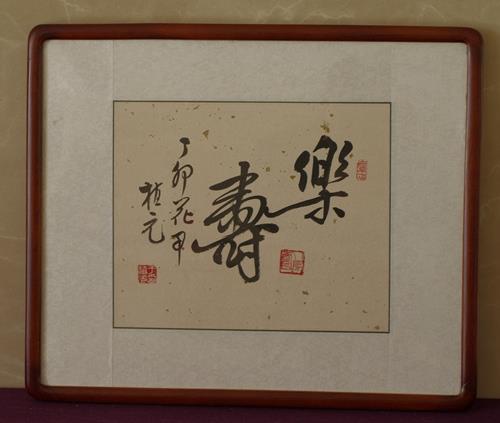 樂壽
丁卯花甲
植元